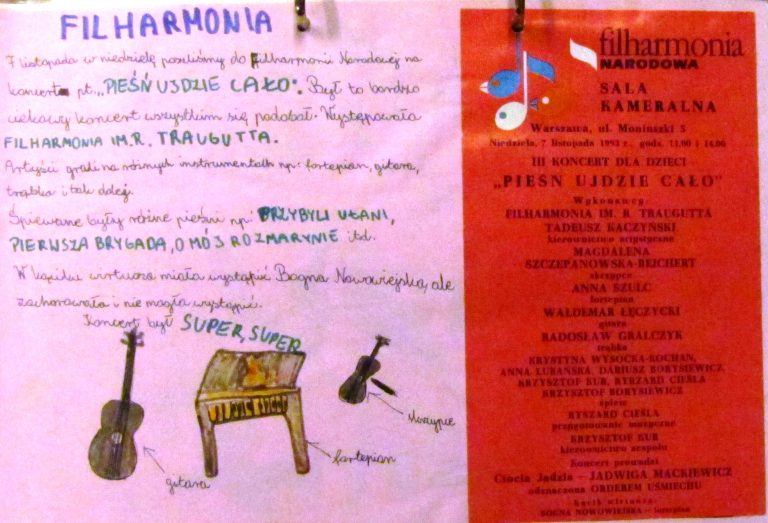 FILHARMONIA
7 listopada w niedzielę poszliśmy do Filharmonii Narodowej na
koncert pt. „PIEŚŃ UJDZIE CAŁO". Był to bardzo
ciekawy koncert wszystkim się podobał. Występowała
FILHARMONIA IM.R. TRAUGUTTA.
Artyści grali na różnych instrumentach np: fortepian, gitara,
trąbka i tak dalej.
Śpiewane były różne pieśni np: PRZYBYLI UŁANI,
PIERWSZA BRYGADA, O MÓJ ROZMARYNIE itd.
W kąciku wirtuoza miała wystąpić Bogna Nowowiejska, ale
zachorowała i nie mogła wystąpić.
Koncert był SUPER, SUPER
gitara
fortepian
skrzypce
filharmonia
NARODOWA
SALA
KAMERALNA
Warszawa, ul. Moniuszki 5
Niedziela, 7 listopada 1993 r., godz. 11.00 i 14.00
III KONCERT DLA DZIECI
„PIEŚN UJDZIE CAŁO"
Wykonawcy
FILHARMONIA IM. R. TRAUGUTTA
TADEUSZ KACZYŃSKI
kierownictwo artystyczne
MAGDALENA
SZCZEPANOWSKA-REICHERT
skrzypce
ANNA SZULC
fortepian
WALDEMAR ŁĘCZYCKI
gitara
RADOSŁAW GRALCZYK
trąbka
KRYSTYNA WYSOCKA-KOCHAN,
ANNA LUBAŃSKA, DARIUSZ BORYSIEWICZ,
KRZYSZTOF KUR, RYRZARD CIEŚLA
KRZYSZTOF BORYSIEWICZ
śpiew
RYSZARD CIEŚLA
przygotowanie muzyczne
KRZYSZTOF KUR
kierownictwo zespołu
Koncert prowadzi
Ciocia Jadzia – JADWIGA MACKIEWICZ
odznaczona ORDEREM UŚMIECHU
Kącik wirtuoza:
BOGNA NOWOWIEJSKA – fortepian